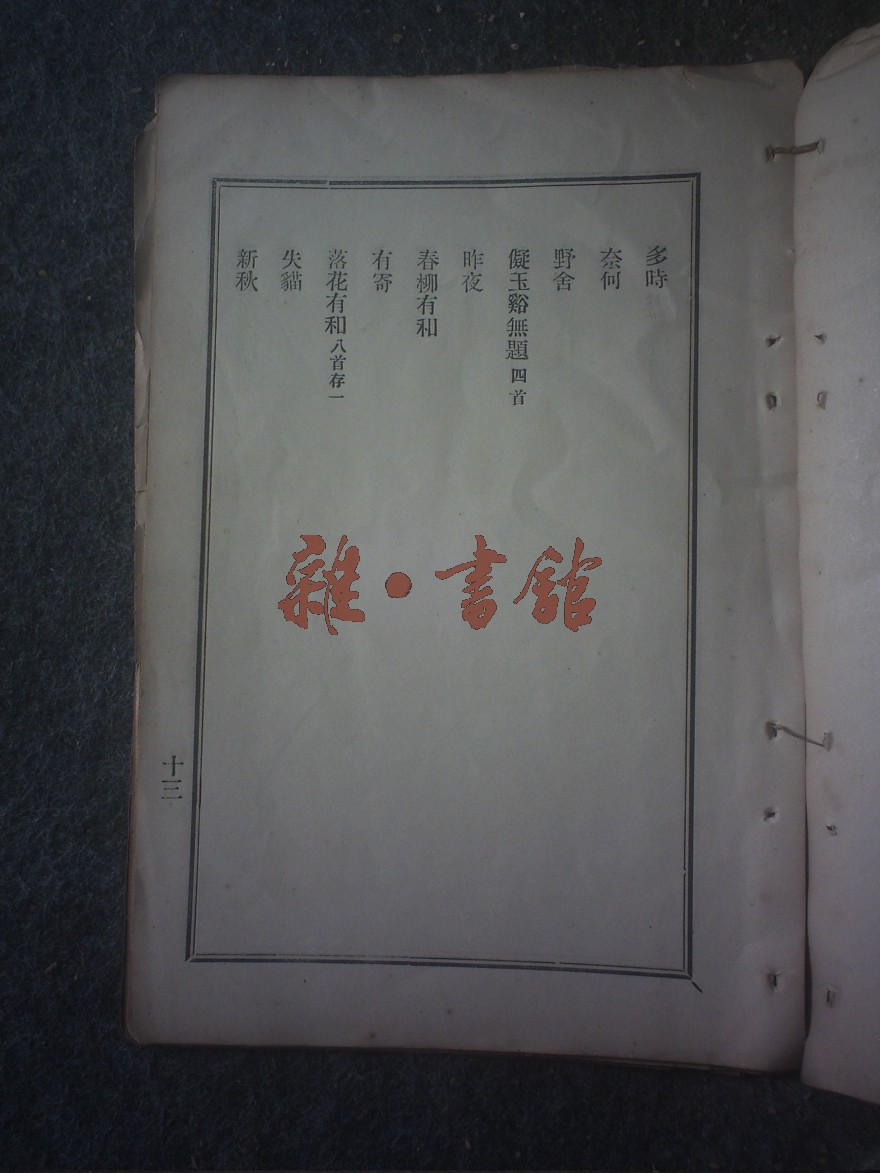 多時
奈何
野舍
儗玉谿無題 四首
昨夜
春柳有和
有寄
落花有和 八首存一
失貓
新秋
十三
雜·書館